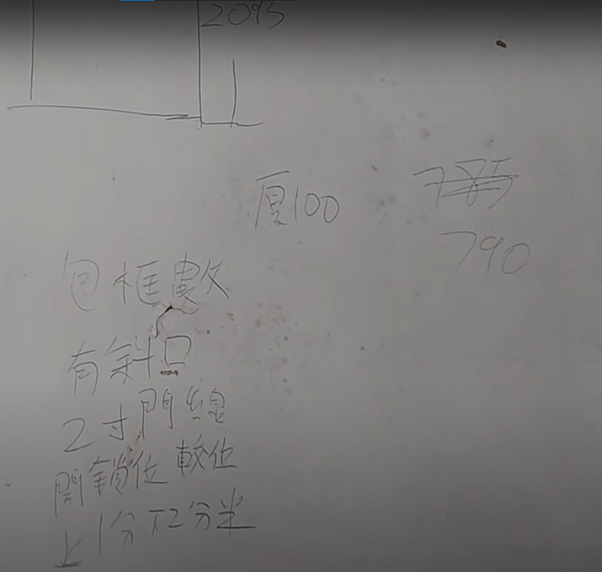 2095
厚100
785
790
包框數
有斜口
2寸門線
開鎖位較位
上1分下2分半